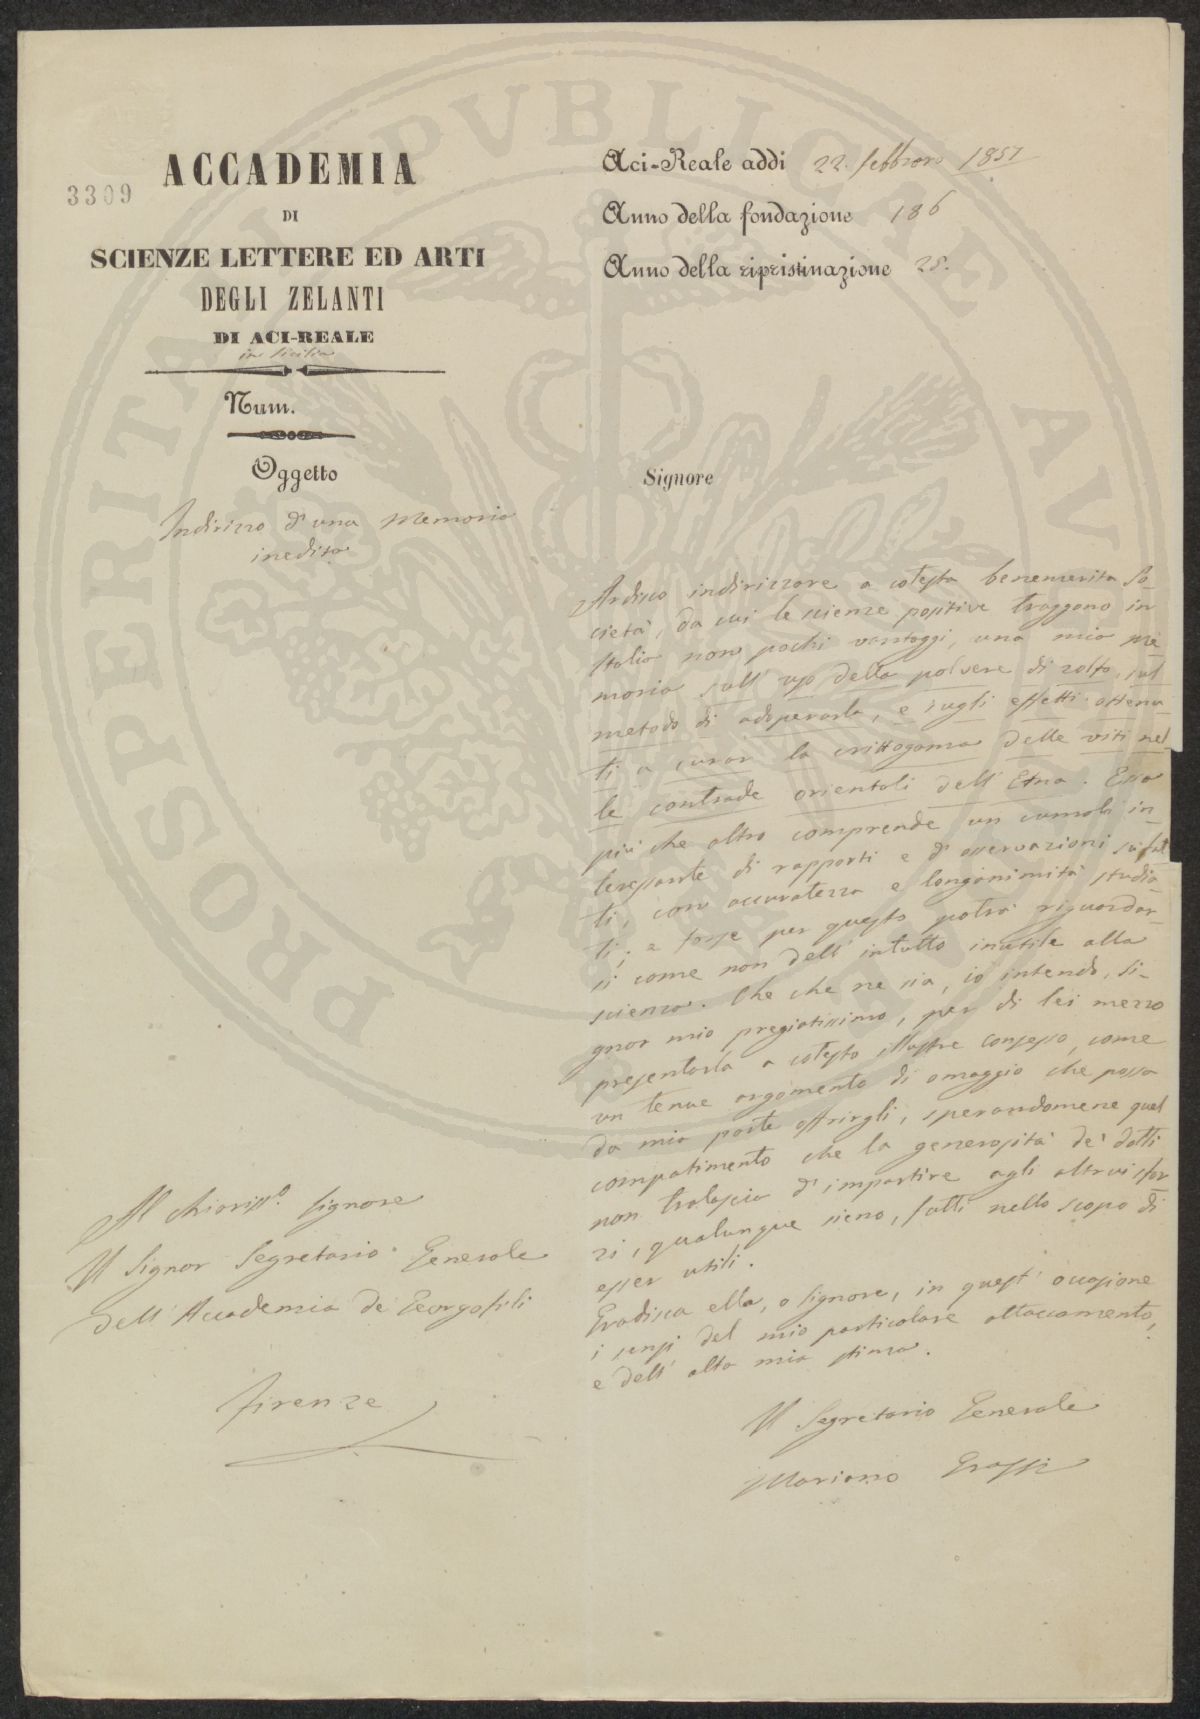 3309
ACCADEMIA
DI
SCIENZE LETTERE ED ARTI
DEGLI ZELANTI
DI ACI-REALE
in Sicilia
Num.
Oggetto
Indirizzo d'una Memoria
inedita
Aci-Reale addì 22. febbraro 1857
Anno della fondazione 186
Anno della ripristinazione 25.
Signore
Ardisco indirizzare a cotesta benemerita So-
cietà, da cui le scienze positive traggono in
Italia non pochi vantaggi, una mia me-
moria sull'uso della polvere di zolfo, sul
metodo di adoperarla, e sugli effetti ottenu-
ti a curar la crittogama delle viti nel-
le contrade orientali dell'Etna. Essa
più che altro comprende un cumolo in-
teressante di rapporti e d'osservazioni su' fat-
ti, con accuratezza e longanimità studia-
ti; e forse per questo potrà riguardar-
si come non dell'intutto inutile alla
scienza. Che che ne sia, io intendo, si-
gnor mio pregiatissimo, per di lei mezzo
presentarla a cotesto illustre consesso, come
un tenue argomento di omaggio che possa
da mia parte offrirgli, sperandomene quel
compatimento che la generosità de' dotti
non tralascia d'impartire agli altrui sfor-
zi, qualunque sieno, fatti nello scopo di
esser utili.
Gradisca ella, o Signore, in quest'occasione
i sensi del mio particolare attaccamento,
e dell'alta mia stima.
Il Segretario Generale
Mariano Grassi
Al Chiariss.o Signore
Il Signor Segretario Generale
dell'Accademia de' Georgofili
Firenze
PROSPERITATI PVBLICAE AV